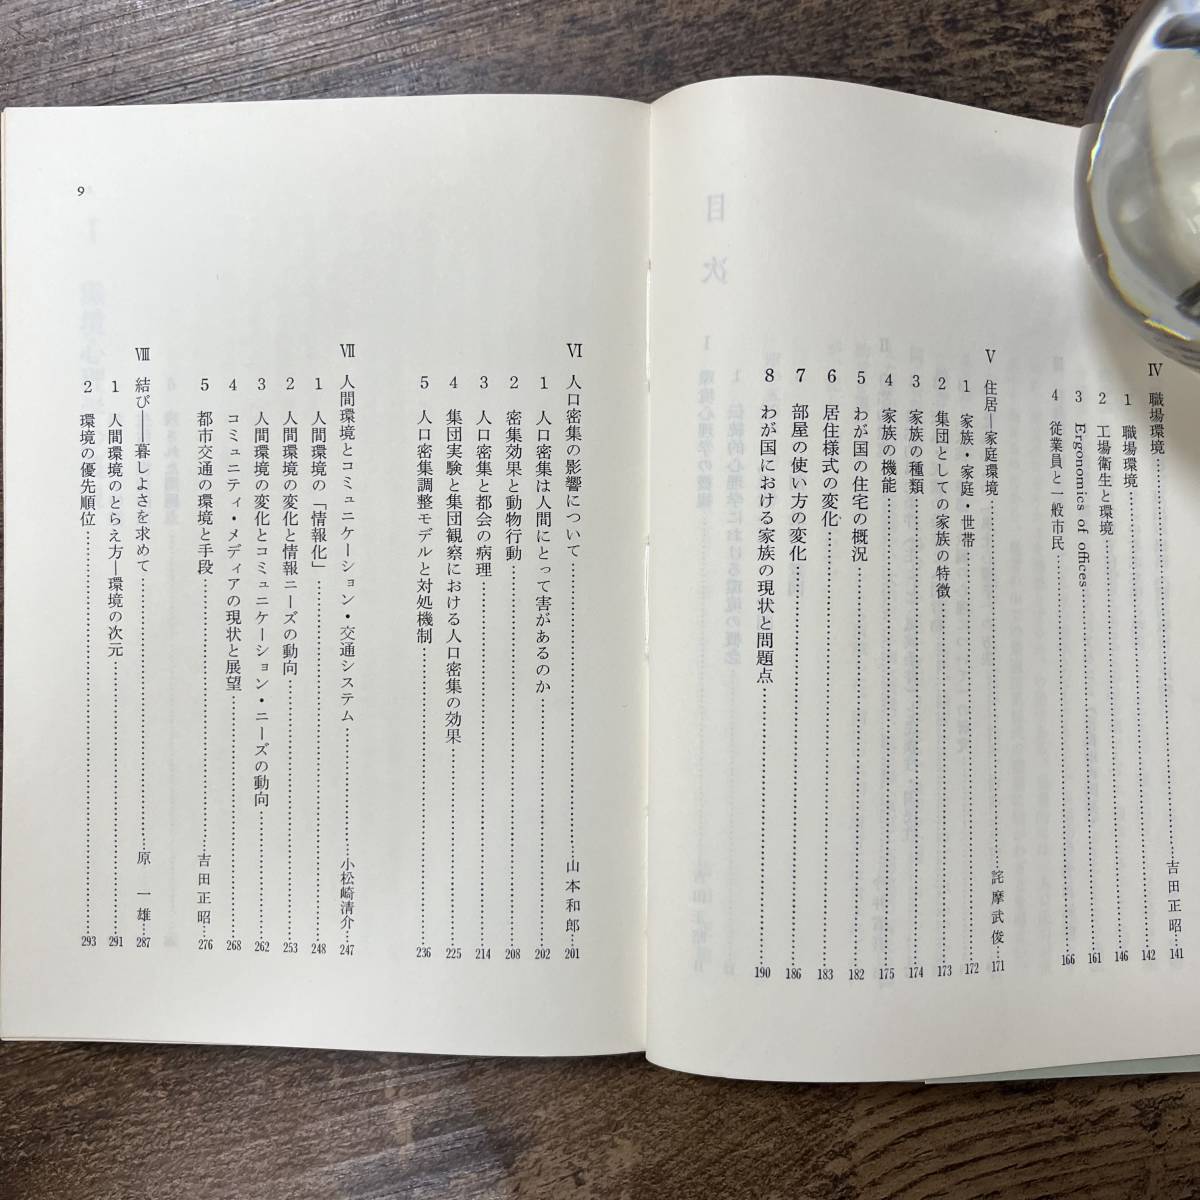 Ⅳ 職場環境……吉田正昭…141
1 職場環境……142
2 工場衛生と環境……146
3 Ergonomics of offices……161
4 従業員と一般市民……166
Ⅴ 住居―家庭環境……詫摩武俊…171
1 家族・家庭・世帯……172
2 集団としての家族の特徴……173
3 家族の種類……174
4 家族の機能……175
5 わが国の住宅の概況……182
6 居住様式の変化……183
7 部屋の使い方の変化……186
8 わが国における家族の現状と問題点……190
Ⅵ 人口密集の影響について……山本和郎…201
1 人口密集は人間にとって害があるのか……202
2 密集効果と動物行動……208
3 人口密集と都会の病理……214
4 集団実験と集団観察における人口密集の効果……225
5 人口密集調整モデルと対処機制……236
Ⅶ 人間環境とコミュニケーション・交通システム……小松崎清介…247
1 人間環境の「情報化」……248
2 人間環境の変化と情報ニーズの動向……253
3 人間環境の変化とコミュニケーション・ニーズの動向……262
4 コミュニティ・メディアの現状と展望……268
5 都市交通の環境と手段……吉田正昭…276
Ⅷ 結び――暮しよさを求めて……原一雄…287
1 人間環境のとらえ方―環境の次元……291
2 環境の優先順位……293
9
目次